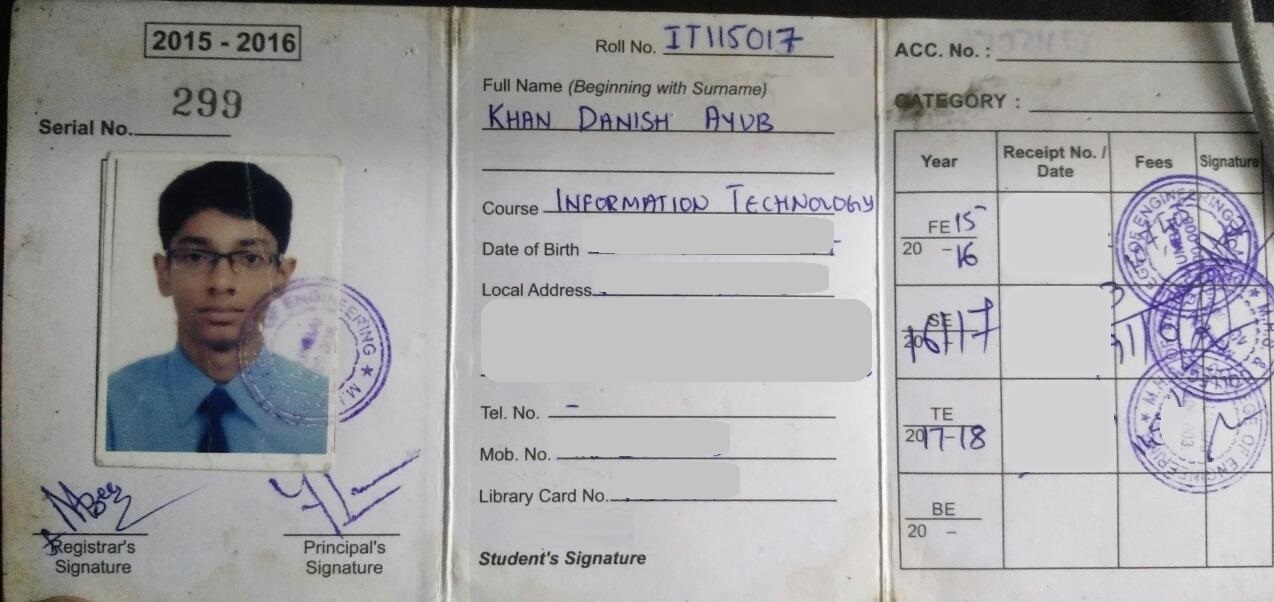 2015 - 2016
299
Serial No.
Registrar's
Signature
Principal's
Signature
Roll No. IT115017
Full Name (Beginning with Surname)
KHAN DANISH AYUB
Course INFORMATION TECHNOLOGY
Date of Birth
Local Address
Tel. No. –
Mob. No.
Library Card No.
Student's Signature
ACC. No. :
CATEGORY :
Year Receipt No. / Date Fees Signature
FE 15
20 -16
SE
20 16/17
TE
20 17-18
BE
20 –